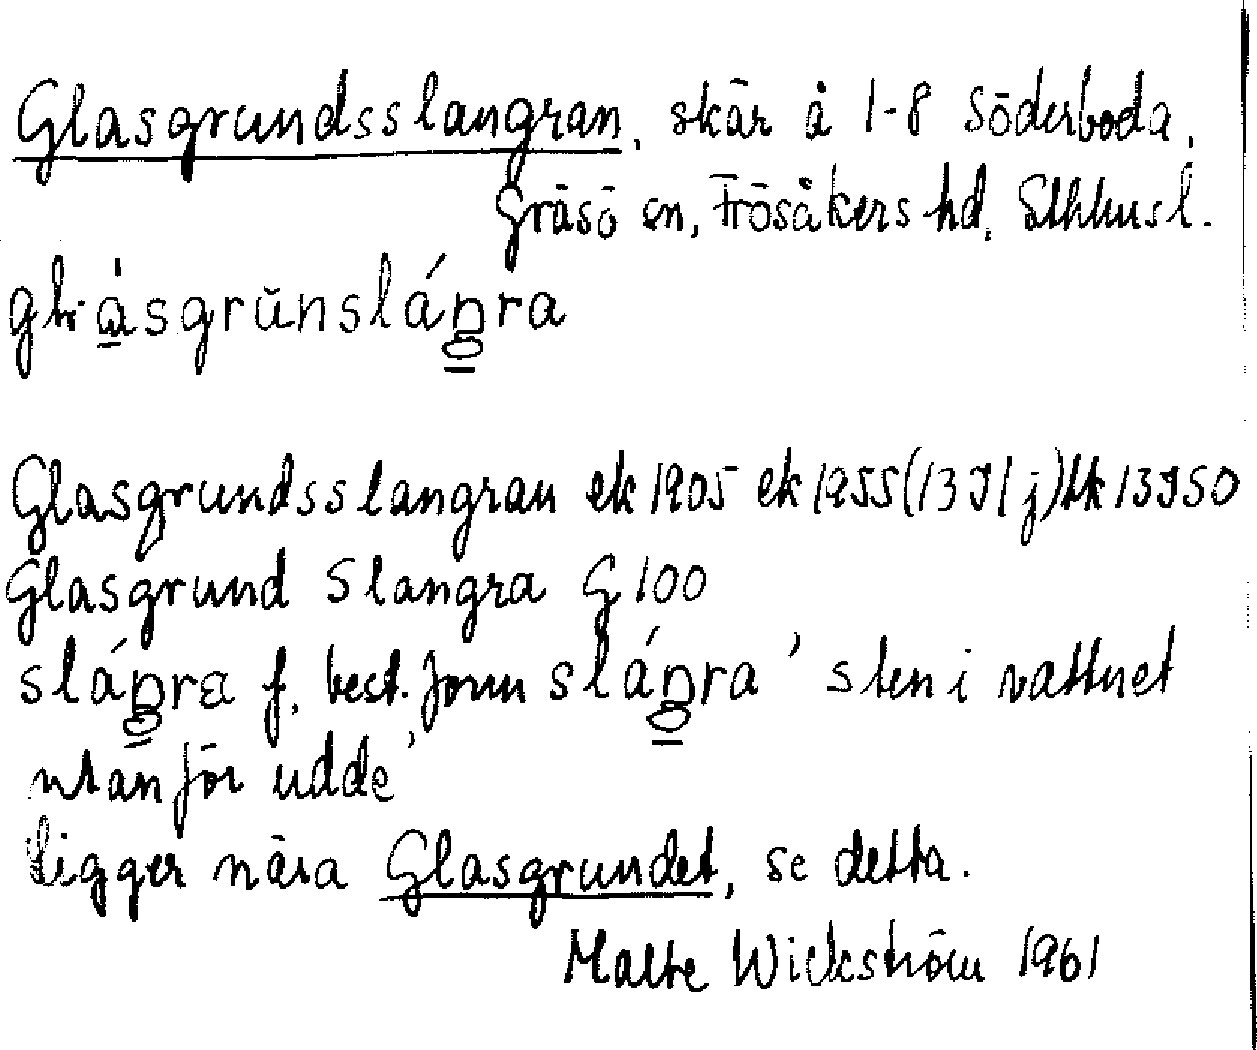 Glasgrundsslangran, skär å 1-8 Söderboda,
Gräsö sn, Frösåkers hd, Sthlmsl.
Glasgrundsslangran ek 1905 ek 1955 (13 I 1 j) hk 13 I SO
Glasgrund Slangra G 100
f. best. form ' sten i vattnet
utanför udde'
Ligger nära Glasgrundet, se detta.
Malte Wickström 1961